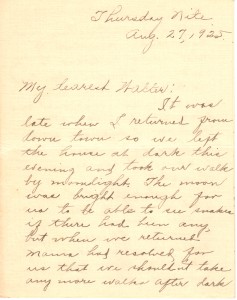 Thursday Nite.
Aug. 27, 1925
My Dearest Walter:
It was
late when I returned from
down town so we left
the house at dark this
evening and took our walk
by moonlight. The moon
was bright enough for
us to be able to see snakes
if there had been any
but when we returned
Mama had resolved for
us that we shouldn't take
any more walks after dark